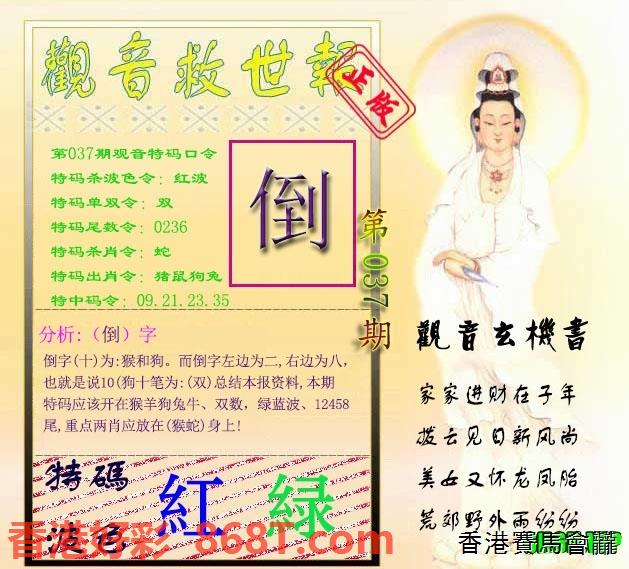 觀音救世報
正版
第037期观音特码口令
特码杀波色令：红波
特码单双令：双
特码尾数令：0236
特码杀肖令：蛇
特码出肖令：猪鼠狗兔
特中码令：09.21.23.35
倒
第037期
分析:（倒）字
倒字(十)为:猴和狗。而倒字左边为二,右边为八，
也就是说10(狗十笔为:(双)总结本报资料,本期
特码应该开在猴羊狗兔牛、双数，绿蓝波、12458
尾,重点两肖应放在(猴蛇)身上!
觀音玄機書
家家进财在子年
拨云见日新风尚
美女又怀龙凤胎
荒郊野外雨纷纷
特碼
波色
紅 绿
香港好彩-868T.com
香港賽馬會